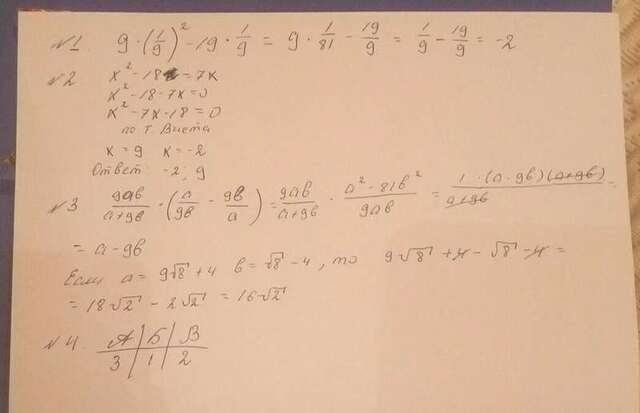 №1. 9 · (1/9)² - 19 · 1/9 = 9 · 1/81 - 19/9 = 1/9 - 19/9 = -2
№2 x² - 18 = 7x
x² - 18 - 7x = 0
x² - 7x - 18 = 0
по т. Виета
x = 9 x = -2
Ответ: -2; 9
№3 9ab/(a+9b) · (a/9b - 9b/a) = 9ab/(a+9b) · (a² - 81b²)/9ab = 1 · (a - 9b)(a+9b)/(a+9b) =
= a - 9b
Если a = 9√8 + 4 b = √8 - 4, то 9√8 + 4 - √8 - 4 =
= 18√2 - 2√2 = 16√2
№4. А | Б | В
3 | 1 | 2